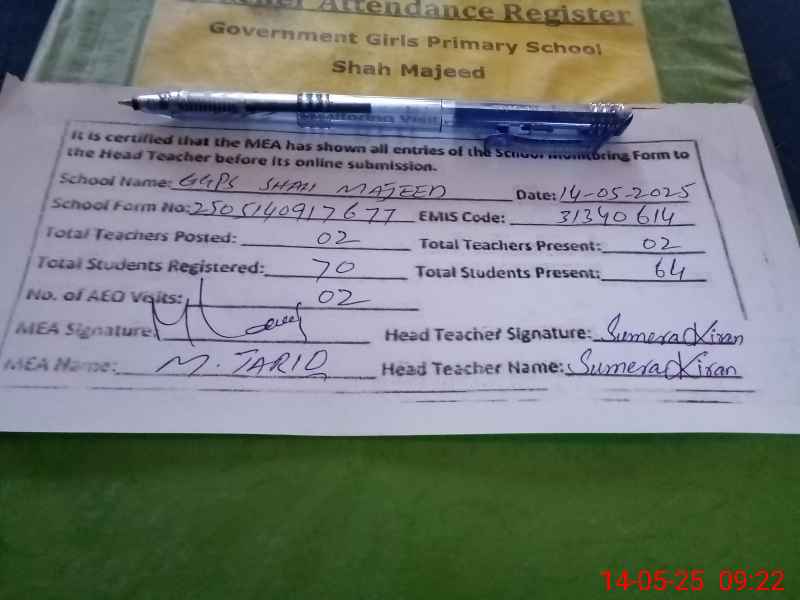 Attendance Register
Government Girls Primary School
Shah Majeed
Monitoring Visit
It is certified that the MEA has shown all entries of the School Monitoring Form to
the Head Teacher before its online submission.
School Name: GGPS SHAH MAJEED Date: 14-05-2025
School Form No: 2505140917677 EMIS Code: 31340614
Total Teachers Posted: 02 Total Teachers Present: 02
Total Students Registered: 70 Total Students Present: 64
No. of AEO Visits: 02
MEA Signature: Head Teacher Signature: Sumera Kiran
MEA Name: M. TARIQ Head Teacher Name: Sumera Kiran
14-05-25 09:22